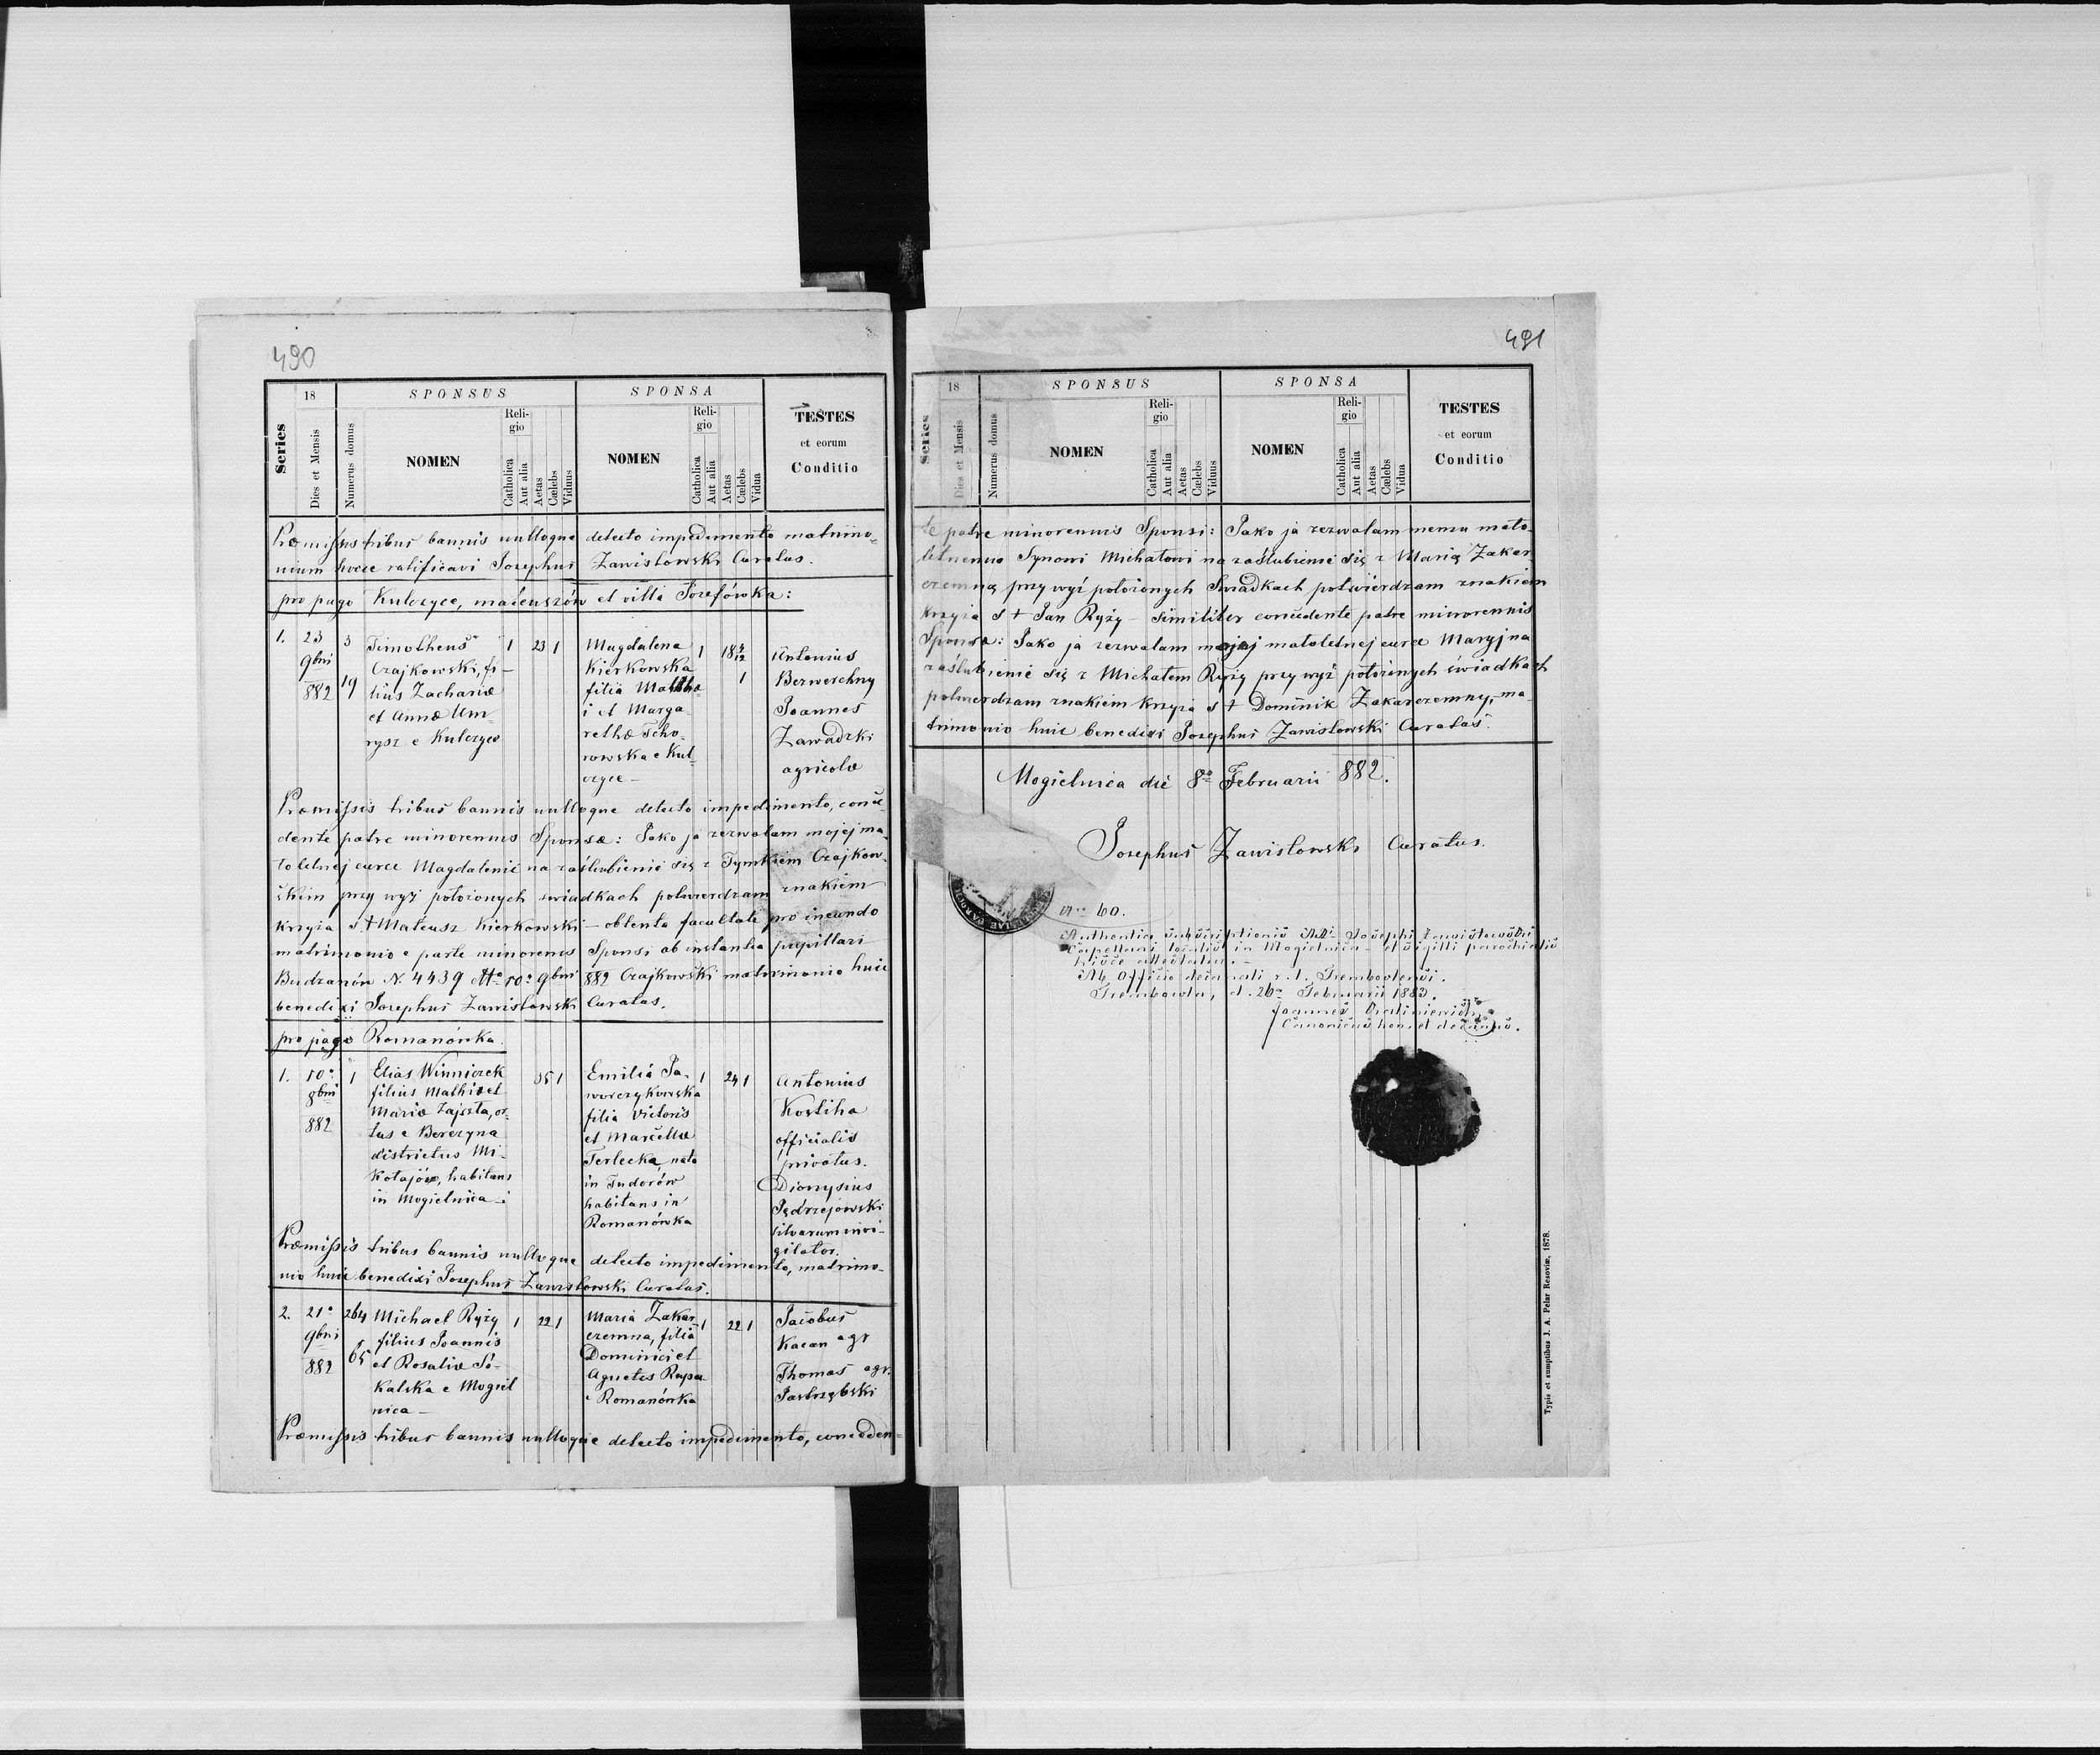 490
18
SPONSUS
SPONSA
Series
Dies et Mensis
Numerus domus
NOMEN
Religio
Catholica
Aut alia
Aetas
Cælebs
Viduus
NOMEN
Religio
Catholica
Aut alia
Aetas
Cælebs
Vidua
TESTES
et eorum
Conditio
Præmissis tribus bannis nulloque detecto impedimento matrimo-
nium hocce ratificavi Josephus Zawisłowski Curatus.
pro pago Kulczyce, mateuszów et villa Józefówka:
1. 23 9bri 882
3 19
Timotheus
Czajkowski, fi-
lius Zachariæ
et Annæ Um-
rysz e Kulczyce
1 23 1
Magdalena
Kierkowska
filia Matthæ
i et Marga-
rethæ Tcho-
rowska e Kul-
czyce -
1 18 1
Antonius
Berwerchny
Joannes
Zawadzki
agricolæ
Præmissis tribus bannis nulloque detecto impedimento, conce-
dente patre minorennis Sponsæ: Jako ja zezwalam mojej ma-
łoletnej curce Magdalenie na zaślubienie się z Tymkiem Czajkow-
skim przy wyż położonych swiadkach potwierdzam znakiem
krzyża s † Mateusz Kierkowski - obtenta facultate pro ineundo
matrimonio e parte minorenis Sponsi ab instantia pupillari
Budzanów N. 4439 dtto 10a 9bri 882 Czajkowski matrimonio huic
benedixi Josephus Zawisłowski Curatus.
pro pago Romanówka.
1. 10a 8bri 882
1
Elias Winniczek
filius Mathiæ et
Mariæ Zajszła, or-
tus e Berezyna
districtus Mi-
kołajów, habitans
in Mogielnica.
35 1
Emilia Ja-
worczykowska
filia Victoris
et Marcellæ
Terlecka, nata
in Tudorów
habitans in
Romanówka
1 24 1
Antonius
Kostiha
officialis
privatus.
Dionysius
Jędrzejowski
silvarum invi-
gilator.
Præmissis tribus bannis nulloque detecto impedimento, matrimo-
nio huic benedixi Josephus Zawisłowski Curatus.
2. 21a 9bri 882
264 65
Michael Ryży
filius Joannis
et Rosaliæ So-
kalska e Mogiel
nica -
1 22 1
Maria Zakar-
czemna, filia
Dominici et
Agnetis Rupa
e Romanówka
1 22 1
Jacobus
Kacan agr
Thomas agr.
Jastrzębski
Præmissis tribus bannis nulloque detecto impedimento, conceden-
491
18
SPONSUS
SPONSA
Series
Dies et Mensis
Numerus domus
NOMEN
Religio
Catholica
Aut alia
Aetas
Cælebs
Viduus
NOMEN
Religio
Catholica
Aut alia
Aetas
Cælebs
Vidua
TESTES
et eorum
Conditio
te patre minorennis Sponsi: Jako ja zezwalam memu mało-
letnemu Synowi Michałowi na zaślubienie się z Marią Zakar-
czemną przy wyż położonych Swiadkach potwierdzam znakiem
krzyża s † Jan Ryży - similiter concedente patre minorennis
Sponsæ: Jako ja zezwalam mojej małoletnej curce Maryi na
zaślubienie się z Michałem Ryży przy wyż położonych świadkach
potwierdzam znakiem krzyża s † Dominik Zakarczemny, - ma-
trimonio huic benedixi Josephus Zawisłowski Curatus.
Mogielnica die 8va Februarii 882.
Josephus Zawisłowski Curatus.
60.
Authentia subscriptionis Josephi Zawisłowski
Capellani localis in Mogielnica et sigilli parochialis
hisce attestatur. -
Ab Officio decanali r. l. Trembovlensi.
Trembowla, d. 26a Februarii 1883.
Joannes
Canonicus hon. et decanus.
Typis et sumptibus J. A. Pelar Resoviæ, 1878.